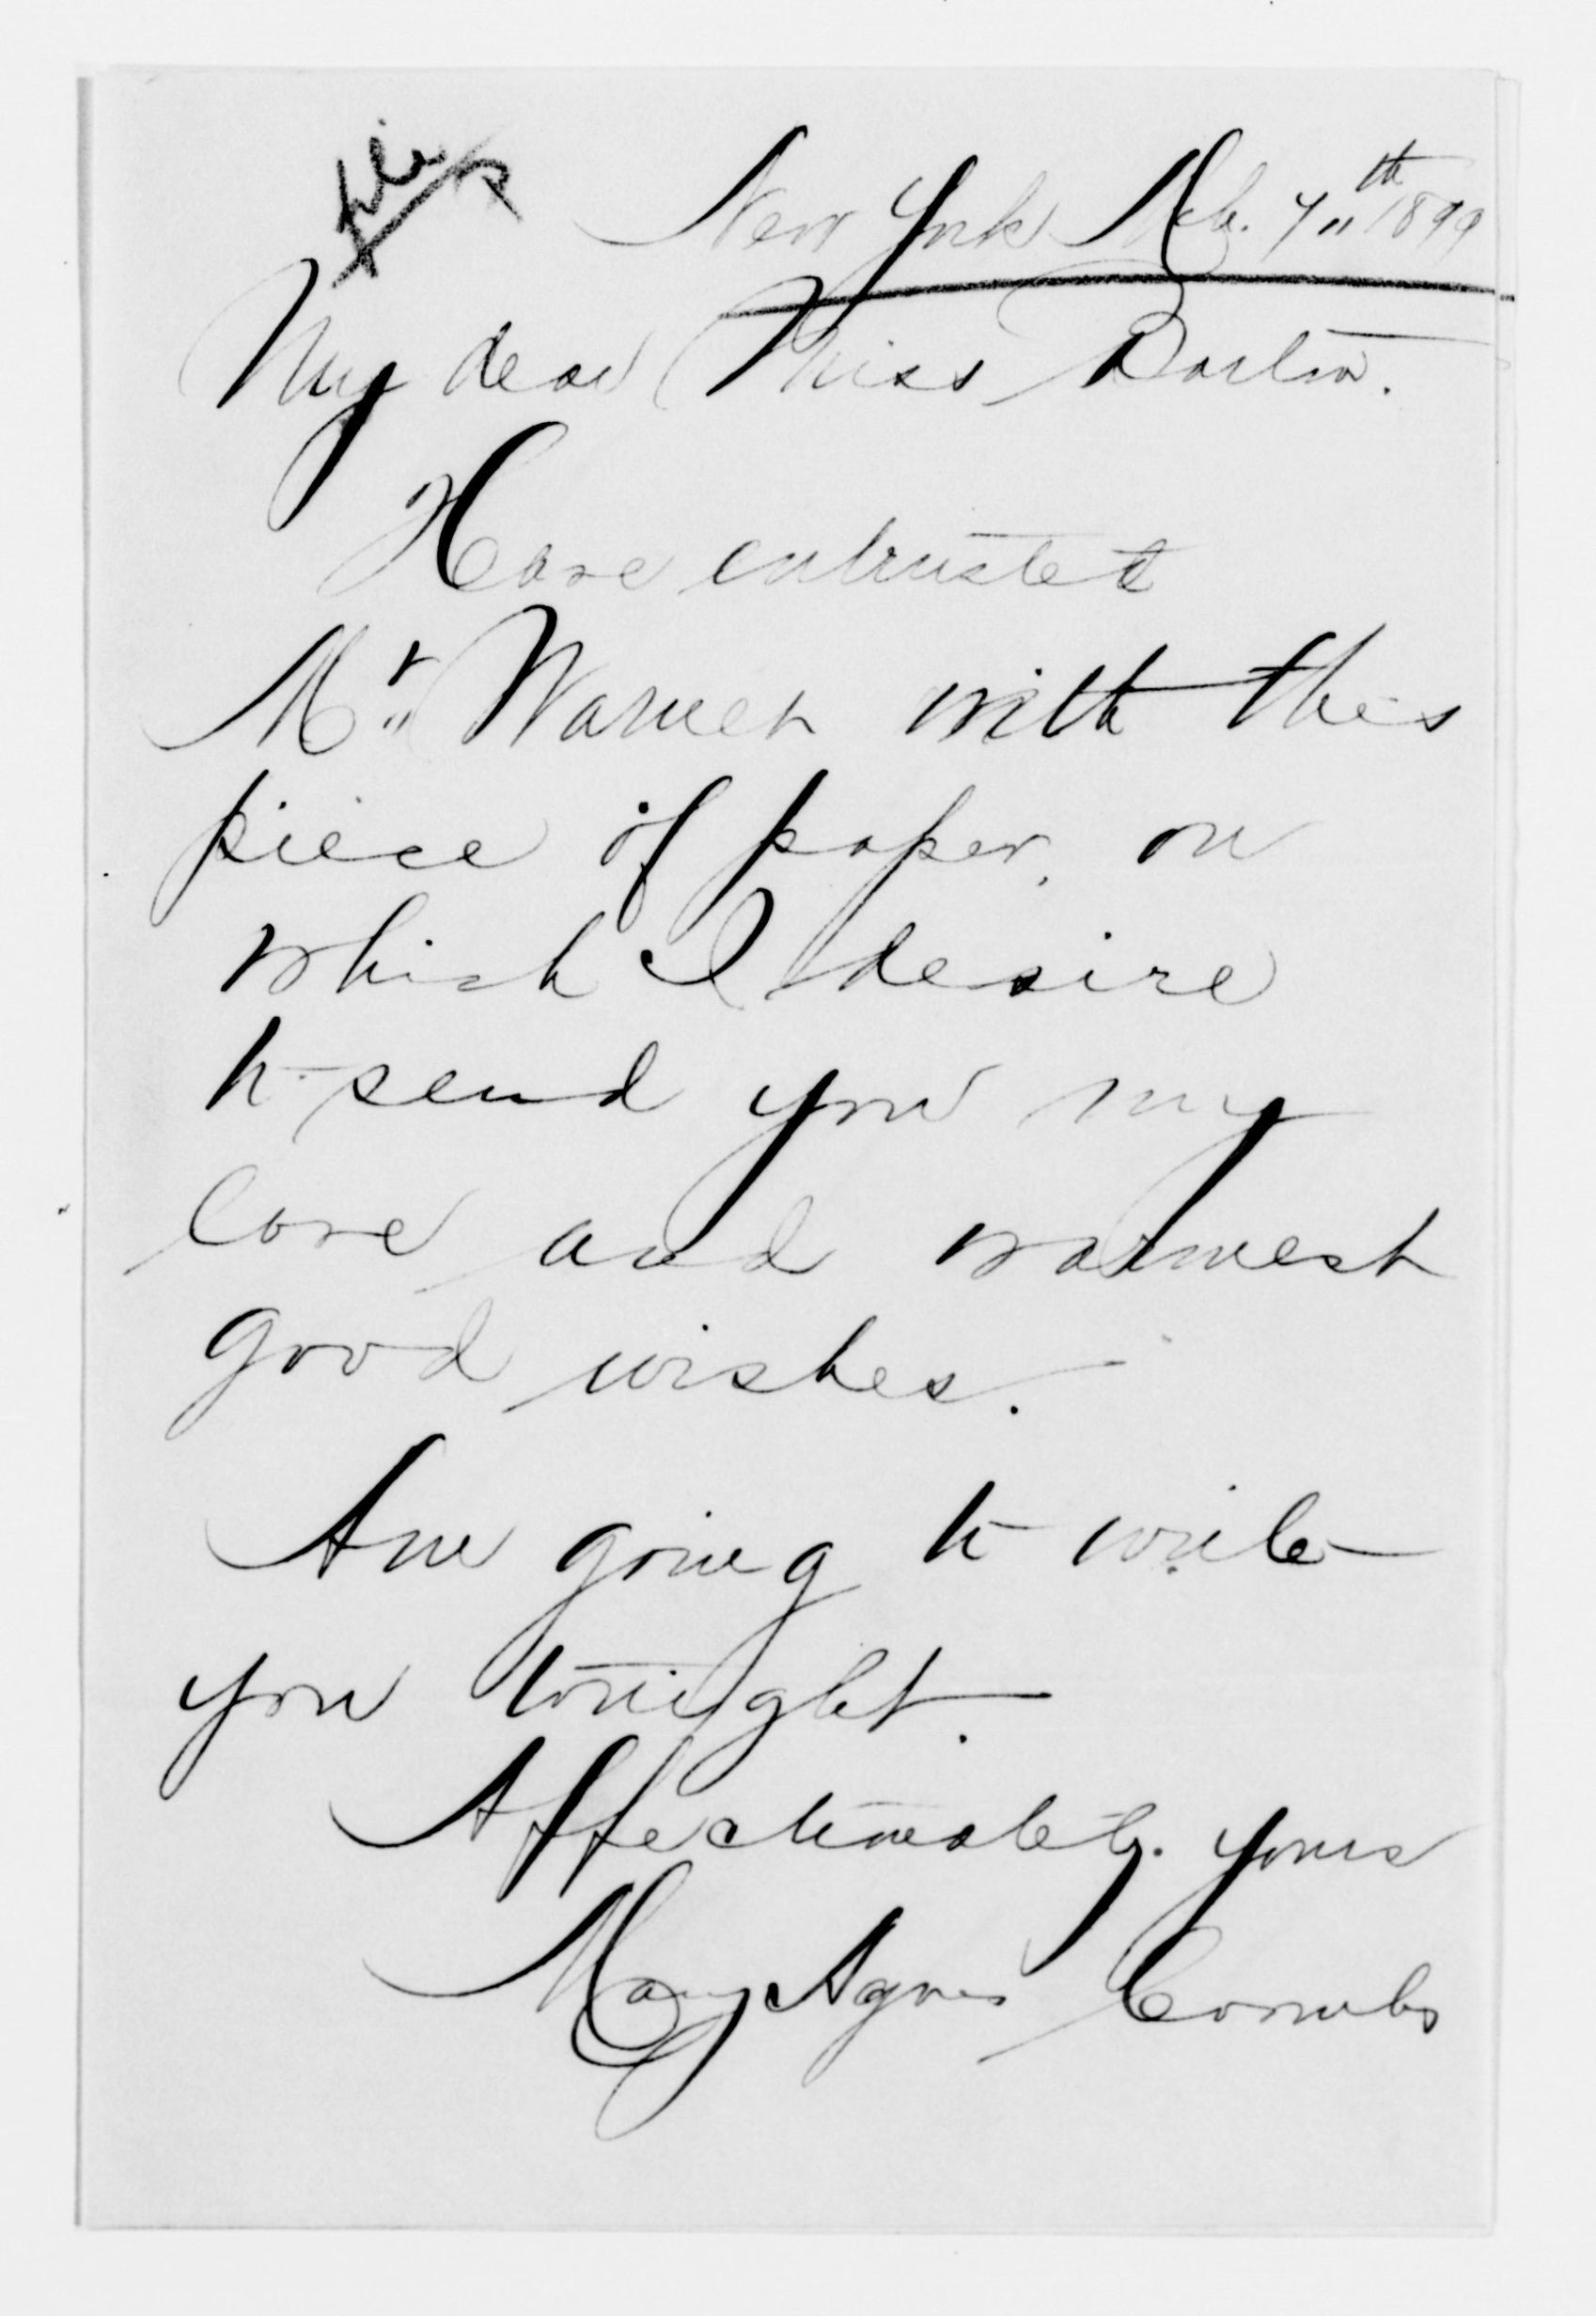 New York Feb. 7th 1899
My dear Miss Barton.
Have entrusted
Mr Warner with this
piece of paper, on
which I desire
to send you my
love and warmest
good wishes.
Am going to write
you tonight.
Affectionately yours
Mary Agnes Combs